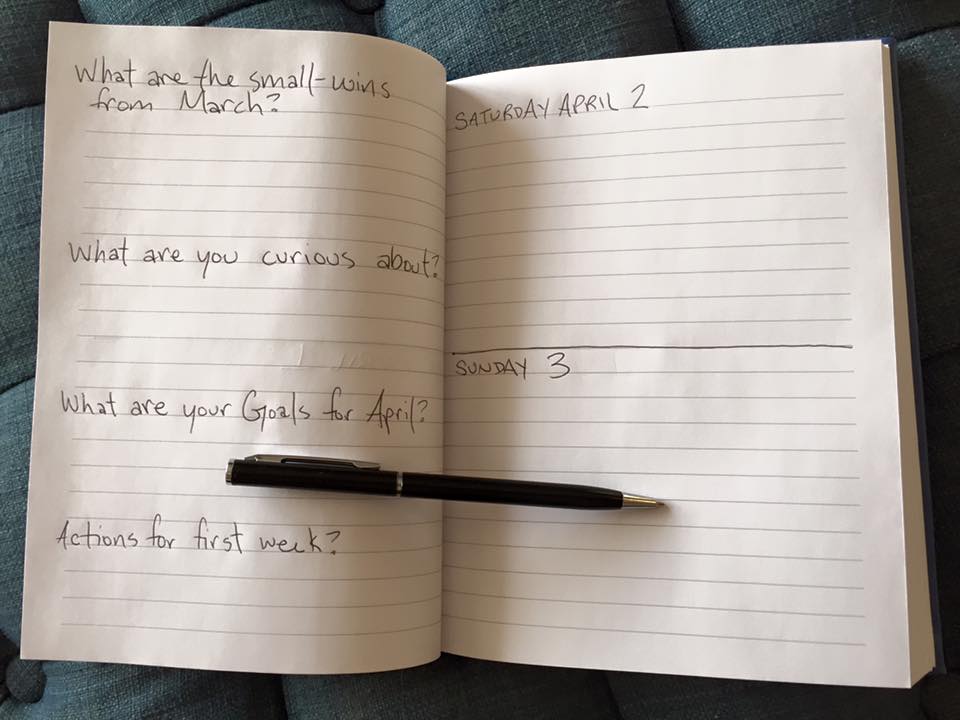 What are the small-wins
from March?
What are you curious about?
What are your Goals for April?
Actions for first week?
SATURDAY APRIL 2
SUNDAY 3